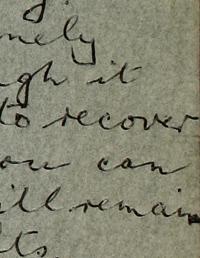 mely
gh it
to recover
ou can
ill remain
ts.